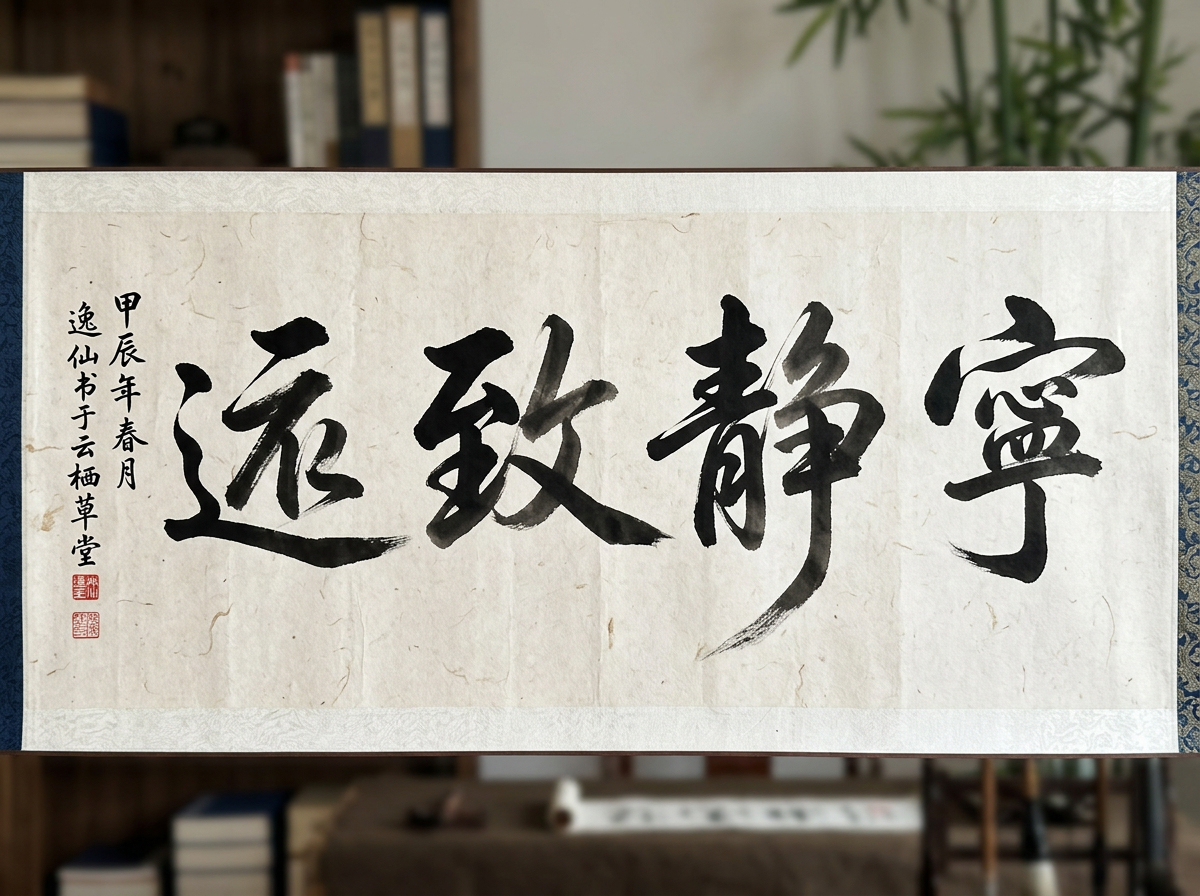 寧靜致远
甲辰年春月
逸仙书于云栖草堂